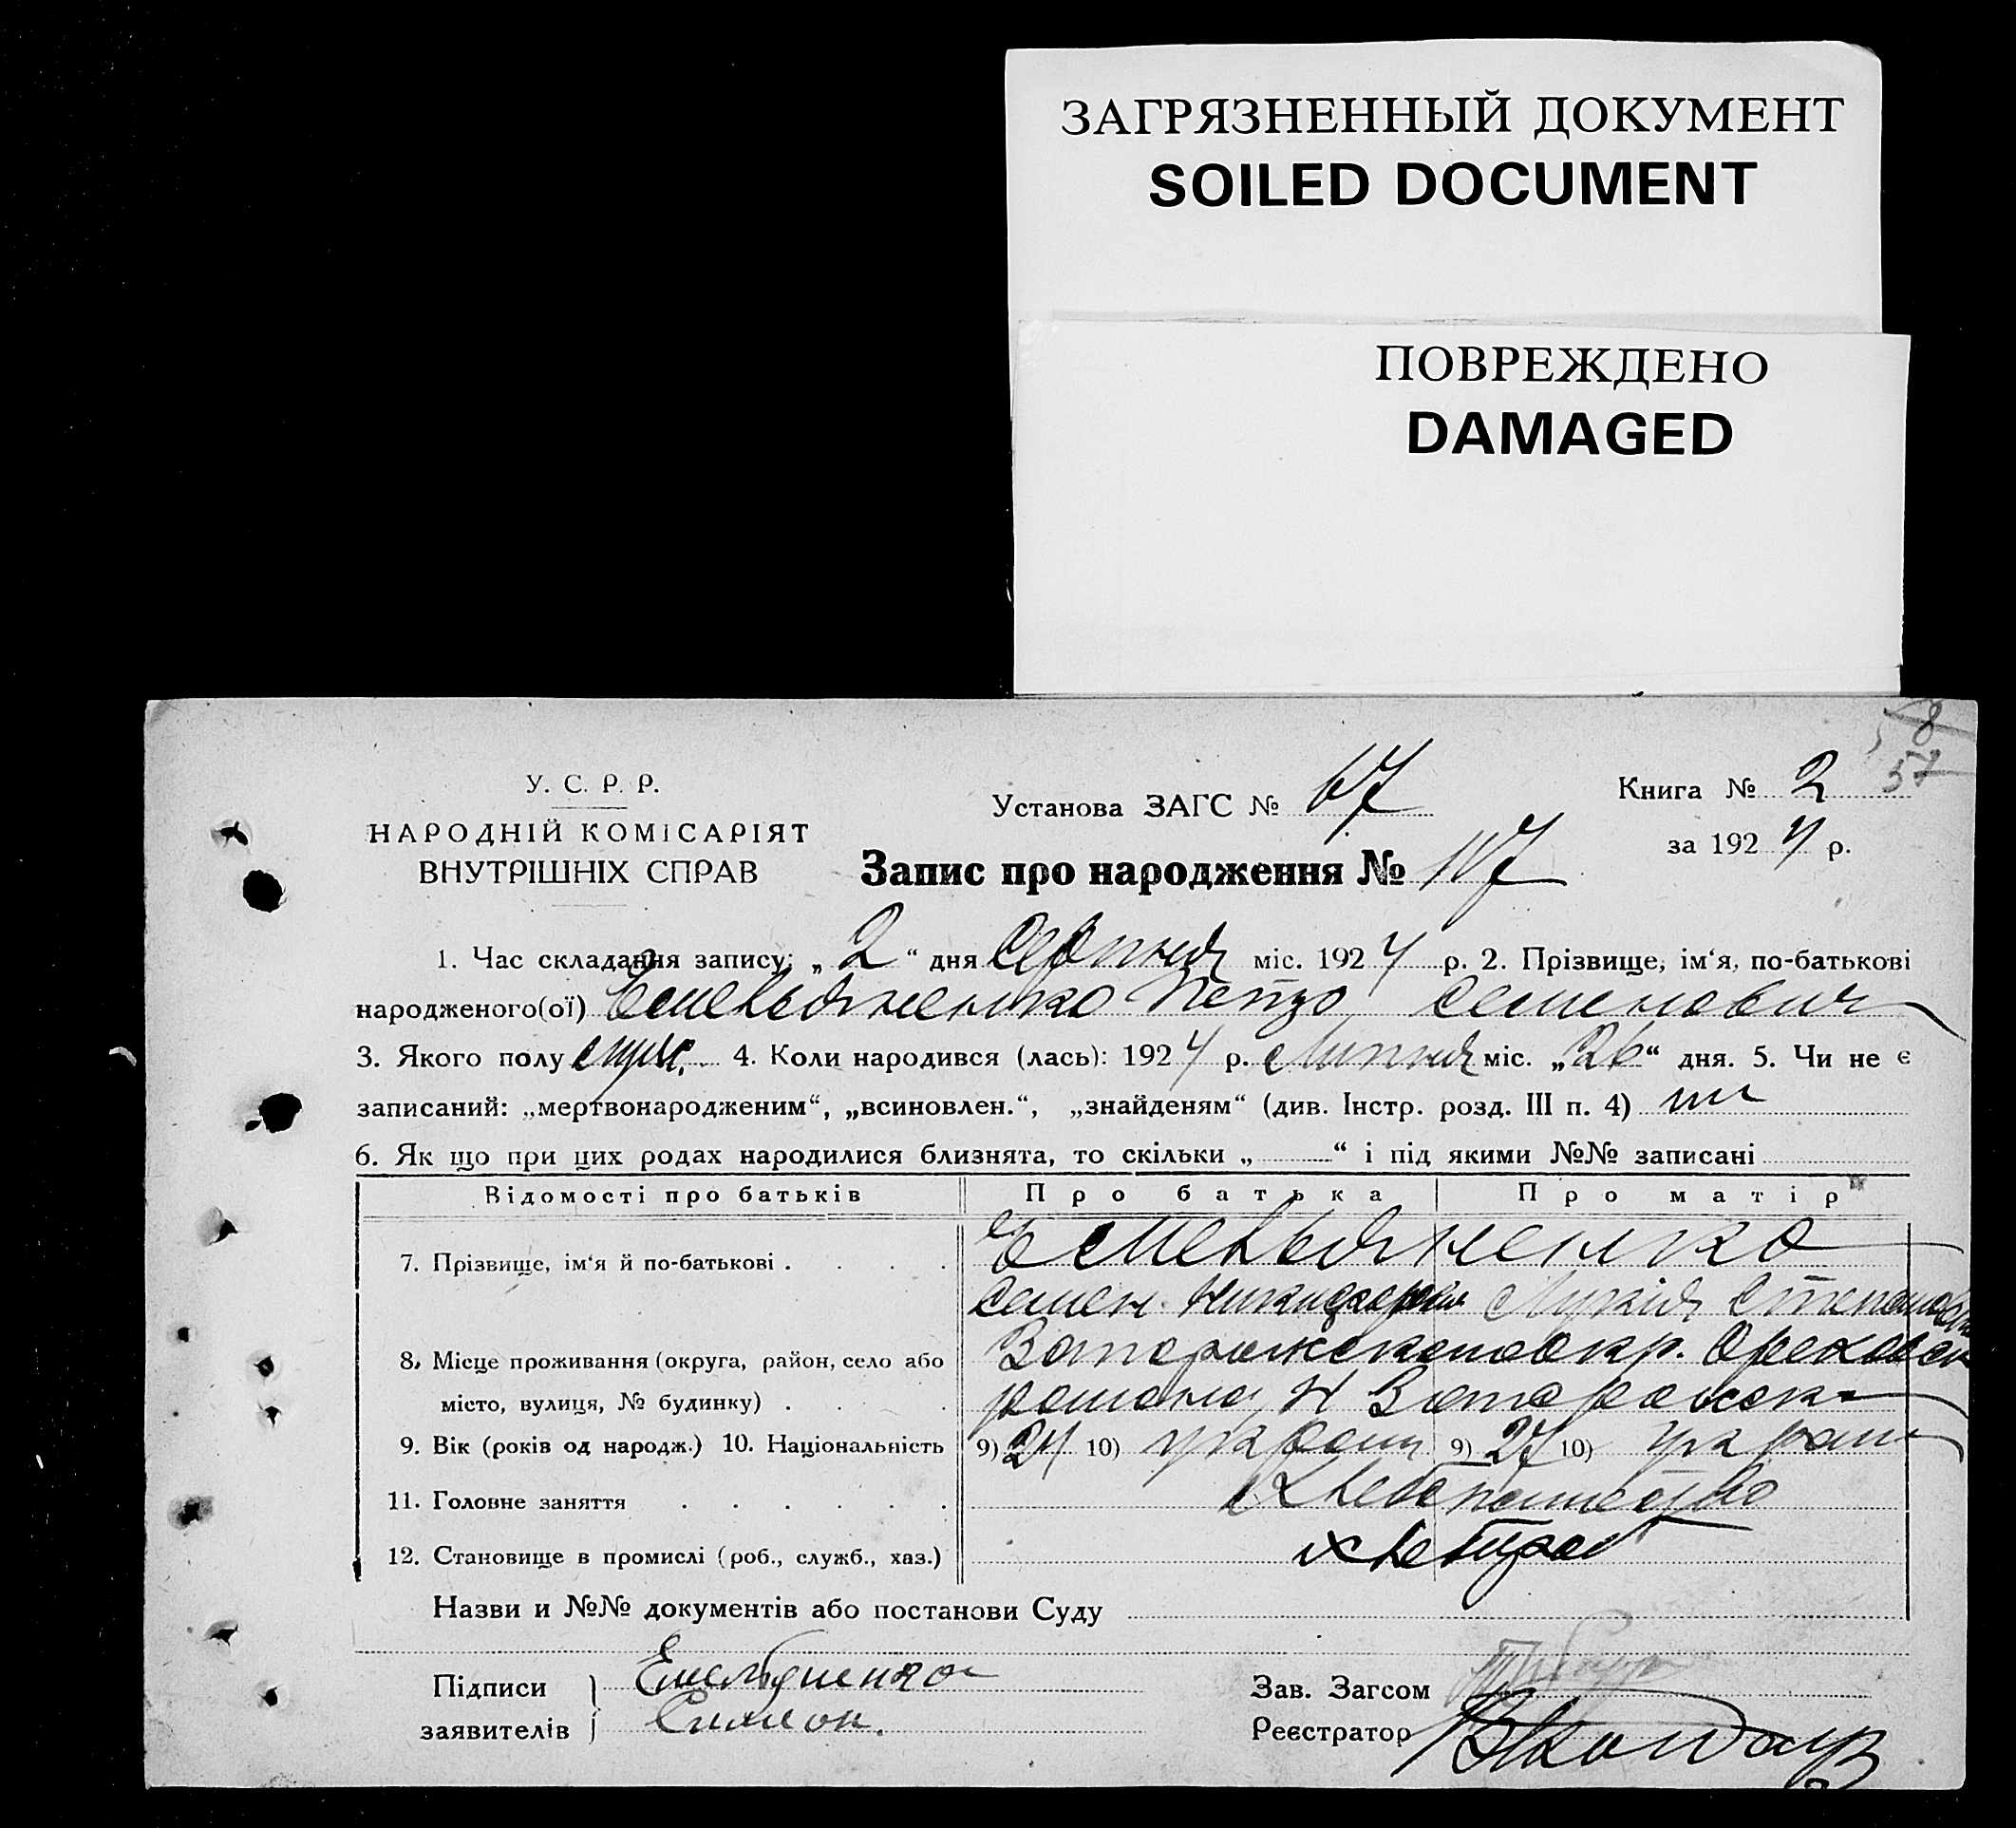 ЗАГРЯЗНЕННЫЙ ДОКУМЕНТ
SOILED DOCUMENT
ПОВРЕЖДЕНО
DAMAGED
58
57
У. С. Р. Р.
НАРОДНІЙ КОМІСАРІЯТ
ВНУТРІШНІХ СПРАВ
Установа ЗАГС № 67
Книга № 2
за 1924 р.
Запис про народження № 107
1. Час складання запису: „2“ дня Серпня міс. 1924 р. 2. Прізвище, ім‘я, по-батькові
народженого(ої) Емельяненко Петро Семенович
3. Якого полу муж. 4. Коли народився (лась): 1924 р. Липня міс. „26“ дня. 5. Чи не є
записаний: „мертвонародженим“, „всиновлен.“, „знайденям“ (див. Інстр. розд. III п. 4) ни
6. Як що при цих родах народилися близнята, то скільки „ “ і під якими №№ записані
Відомості про батьків Про батька Про матір
7. Прізвище, ім‘я й по-батькові Емельяненко
Семен Лукія Степанов
8. Місце проживання (округа, район, село або Запорижского окр. Ореховск
місто, вулиця, № будинку)
9. Вік (років од народж.) 10. Національність 9) 24 10) украин 9) 27 10) украин
11. Головне заняття Хлебопашество
12. Становище в промислі (роб., служб., хаз.) хлебороб
Назви и №№ документів або постанови Суду
Підписи Емельяненко
заявителів Симеон.
Зав. Загсом
Реєстратор